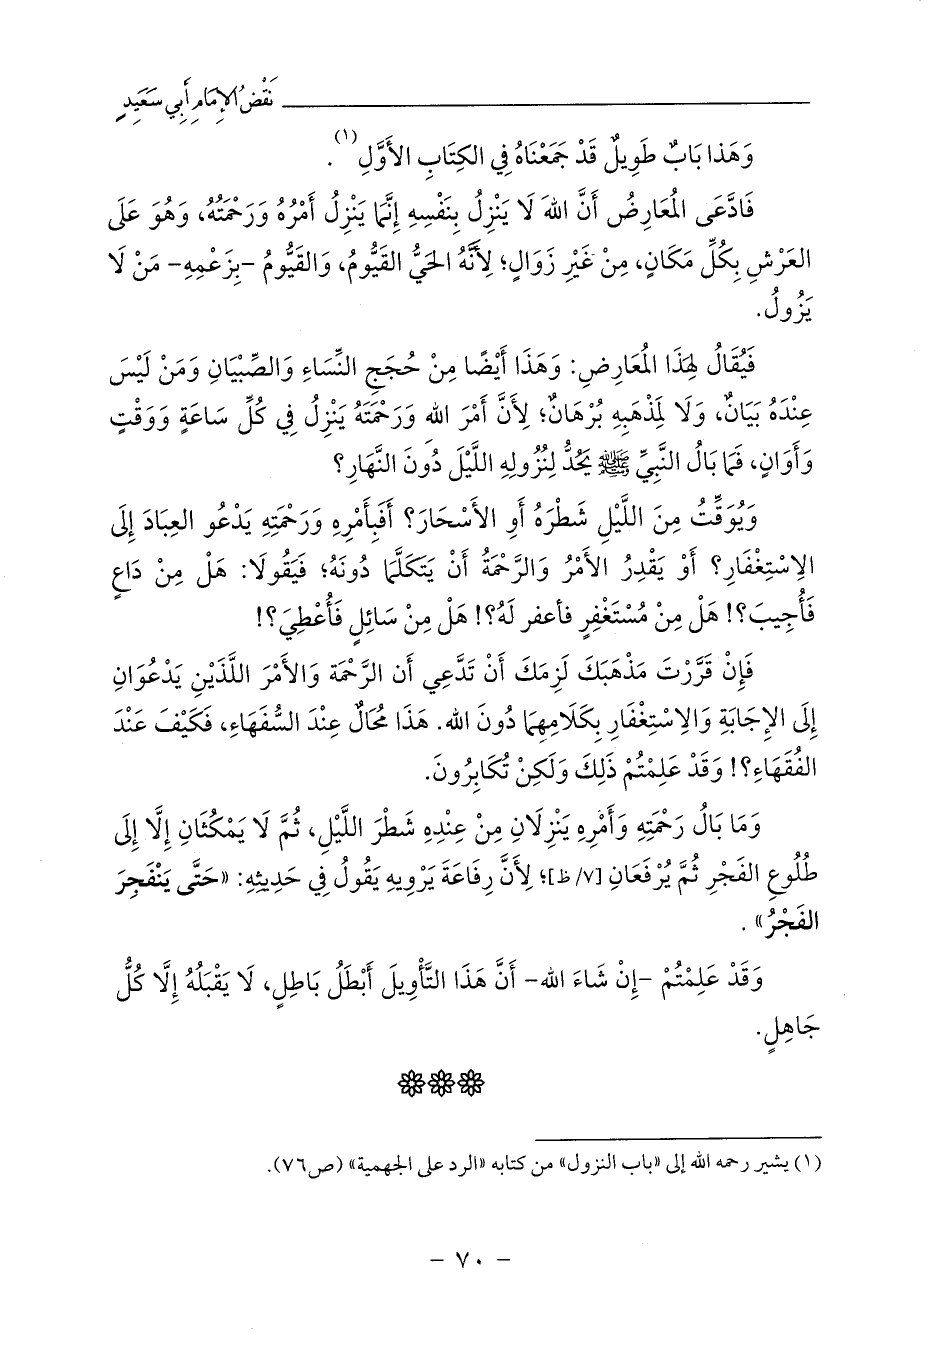 نَقْضُ الإِمَامِ أَبِي سَعِيدٍ
وَهَذا بَابٌ طَوِيلٌ قَدْ جَمَعْنَاهُ فِي الكِتَابِ الأَوَّلِ(١).
فَادَّعَى المُعَارِضُ أَنَّ اللهَ لَا يَنْزِلُ بِنَفْسِهِ إِنَّمَا يَنْزِلُ أَمْرُهُ وَرَحْمَتُهُ، وَهُوَ عَلَى
العَرْشِ بِكُلِّ مَكَانٍ، مِنْ غَيْرِ زَوَالٍ؛ لِأَنَّهُ الحَيُّ القَيُّومُ، وَالقَيُّومُ -بِزَعْمِهِ- مَنْ لَا
يَزُولُ.
فَيُقَالُ لِهَذَا المُعَارِضِ: وَهَذَا أَيْضًا مِنْ حُجَجِ النِّسَاءِ وَالصِّبْيَانِ وَمَنْ لَيْسَ
عِنْدَهُ بَيَانٌ، وَلَا لِمَذْهَبِهِ بُرْهَانٌ؛ لِأَنَّ أَمْرَ الله وَرَحْمَتَهُ يَنْزِلُ فِي كُلِّ سَاعَةٍ وَوَقْتٍ
وَأَوَانٍ، فَمَا بَالُ النَّبِيِّ ﷺ يَحُدُّ لِنُزُولِهِ اللَّيْلَ دُونَ النَّهَارِ؟
وَيُوَقِّتُ مِنَ اللَّيْلِ شَطْرَهُ أَوِ الأَسْحَارَ؟ أَفَبِأَمْرِهِ وَرَحْمَتِهِ يَدْعُو العِبَادَ إِلَى
الِاسْتِغْفَارِ؟ أَوْ يَقْدِرُ الأَمْرُ وَالرَّحْمَةُ أَنْ يَتَكَلَّمَا دُونَهُ؛ فَيَقُولَا: هَلْ مِنْ دَاعٍ
فَأُجِيبَ؟! هَلْ مِنْ مُسْتَغْفِرٍ فأعفر لَهُ؟! هَلْ مِنْ سَائِلٍ فَأُعْطِيَ؟!
فَإِنْ قَرَّرْتَ مَذْهَبَكَ لَزِمَكَ أَنْ تَدَّعِي أَن الرَّحْمَةَ وَالأَمْرَ اللَّذَيْنِ يَدْعُوَانِ
إِلَى الإِجَابَةِ وَالِاسْتِغْفَارِ بِكَلَامِهِمَا دُونَ الله. هَذَا مُحَالٌ عِنْدَ السُّفَهَاءِ، فَكَيْفَ عَنْدَ
الفُقَهَاءِ؟! وَقَدْ عَلِمْتُمْ ذَلِكَ وَلَكِنْ تُكَابِرُونَ.
وَمَا بَالُ رَحْمَتِهِ وَأَمْرِهِ يَنْزِلَانِ مِنْ عِنْدِهِ شَطْرَ اللَّيْلِ، ثُمَّ لَا يَمْكُثَانِ إِلَّا إِلَى
طُلُوعِ الفَجْرِ ثُمَّ يُرْفَعَانِ [٧/ظ]؛ لِأَنَّ رِفَاعَةَ يَرْوِيهِ يَقُولُ فِي حَدِيثِهِ: «حَتَّى يَنْفَجِرَ
الفَجْرُ» .
وَقَدْ عَلِمْتُمْ -إِنْ شَاءَ الله- أَنَّ هَذَا التَّأْوِيلَ أَبْطَلُ بَاطِلٍ، لَا يَقْبَلُهُ إِلَّا كُلُّ
جَاهِلٍ.
(١) يشير رحمه الله إلى «باب النزول» من كتابه «الرد على الجهمية» (ص٧٦).
- ٧٠ -